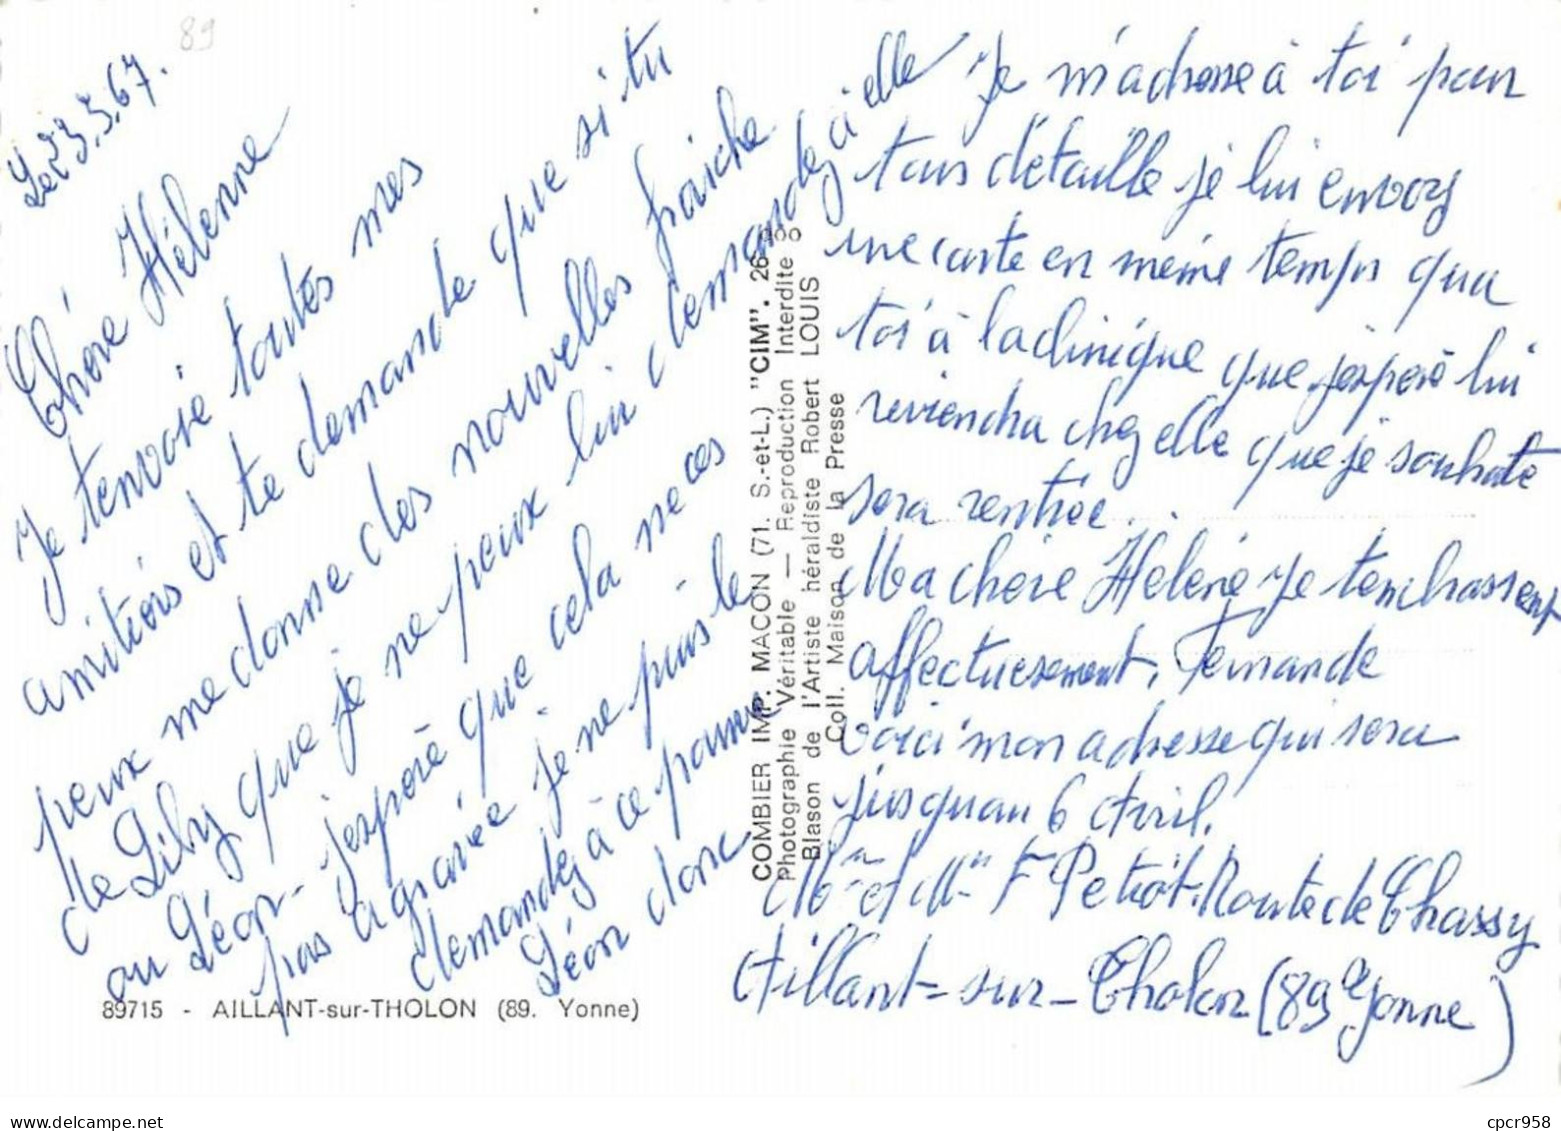 89
Le 23.3.67.
Chère Hélenne
Je t'envoie toutes mes
amitiers et te demande que si tu
peux me donne des nouvelles fraiche
de Lily que je ne peux lui demandez à elle
ou Léon - j'esperè que cela ne ces
pas agravée je ne puis le
demandez à ce pauvre
Léon donc
Je m'adresse à toi pour
tous détaille je lui envoy
une carte en mème temps qua
toi à la clinique que j'esperè lui
reviendra chez elle que je souhate
sera rentrée..
Ma chère Hélène je t'embrassent
affectuesement, Fernande
Voici mon adresse qui sera
jusquau 6 Avril.
Mr et Me F Petiot. Route de Chassy
Aillant-sur-Tholon (89 Yonne)
COMBIER IMP. MACON (71. S.-et-L.) "CIM". 26
Photographie Véritable — Reproduction Interdite
Blason de l'Artiste héraldiste Robert LOUIS
Coll. Maison de la Presse
89715 - AILLANT-sur-THOLON (89. Yonne)
www.delcampe.net
cpcr958